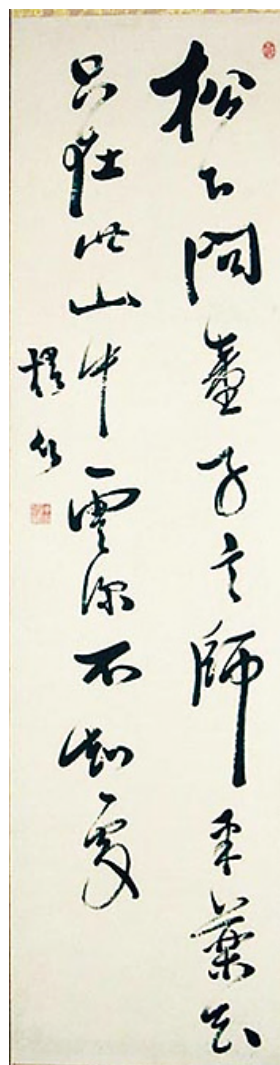 松下問童子言師采藥去
只在此山中雲深不知處